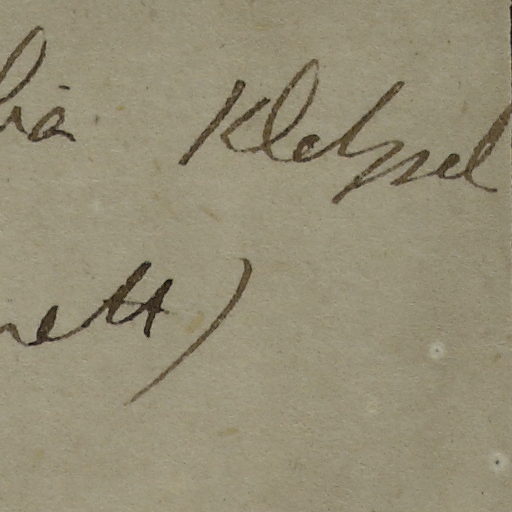 lia Kletzsel
nett)